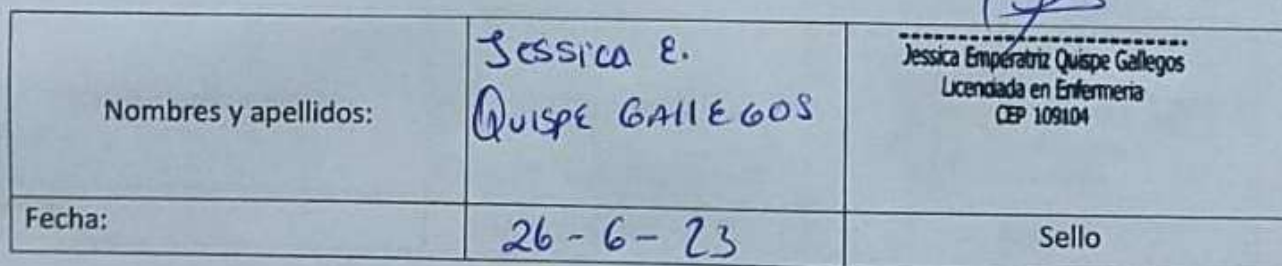 Nombres y apellidos:
Jessica E.
QUISPE GAllEGOS
Jessica Emperatriz Quispe Gallegos
Licenciada en Enfermeria
CEP 109104
Fecha:
26 - 6 - 23
Sello